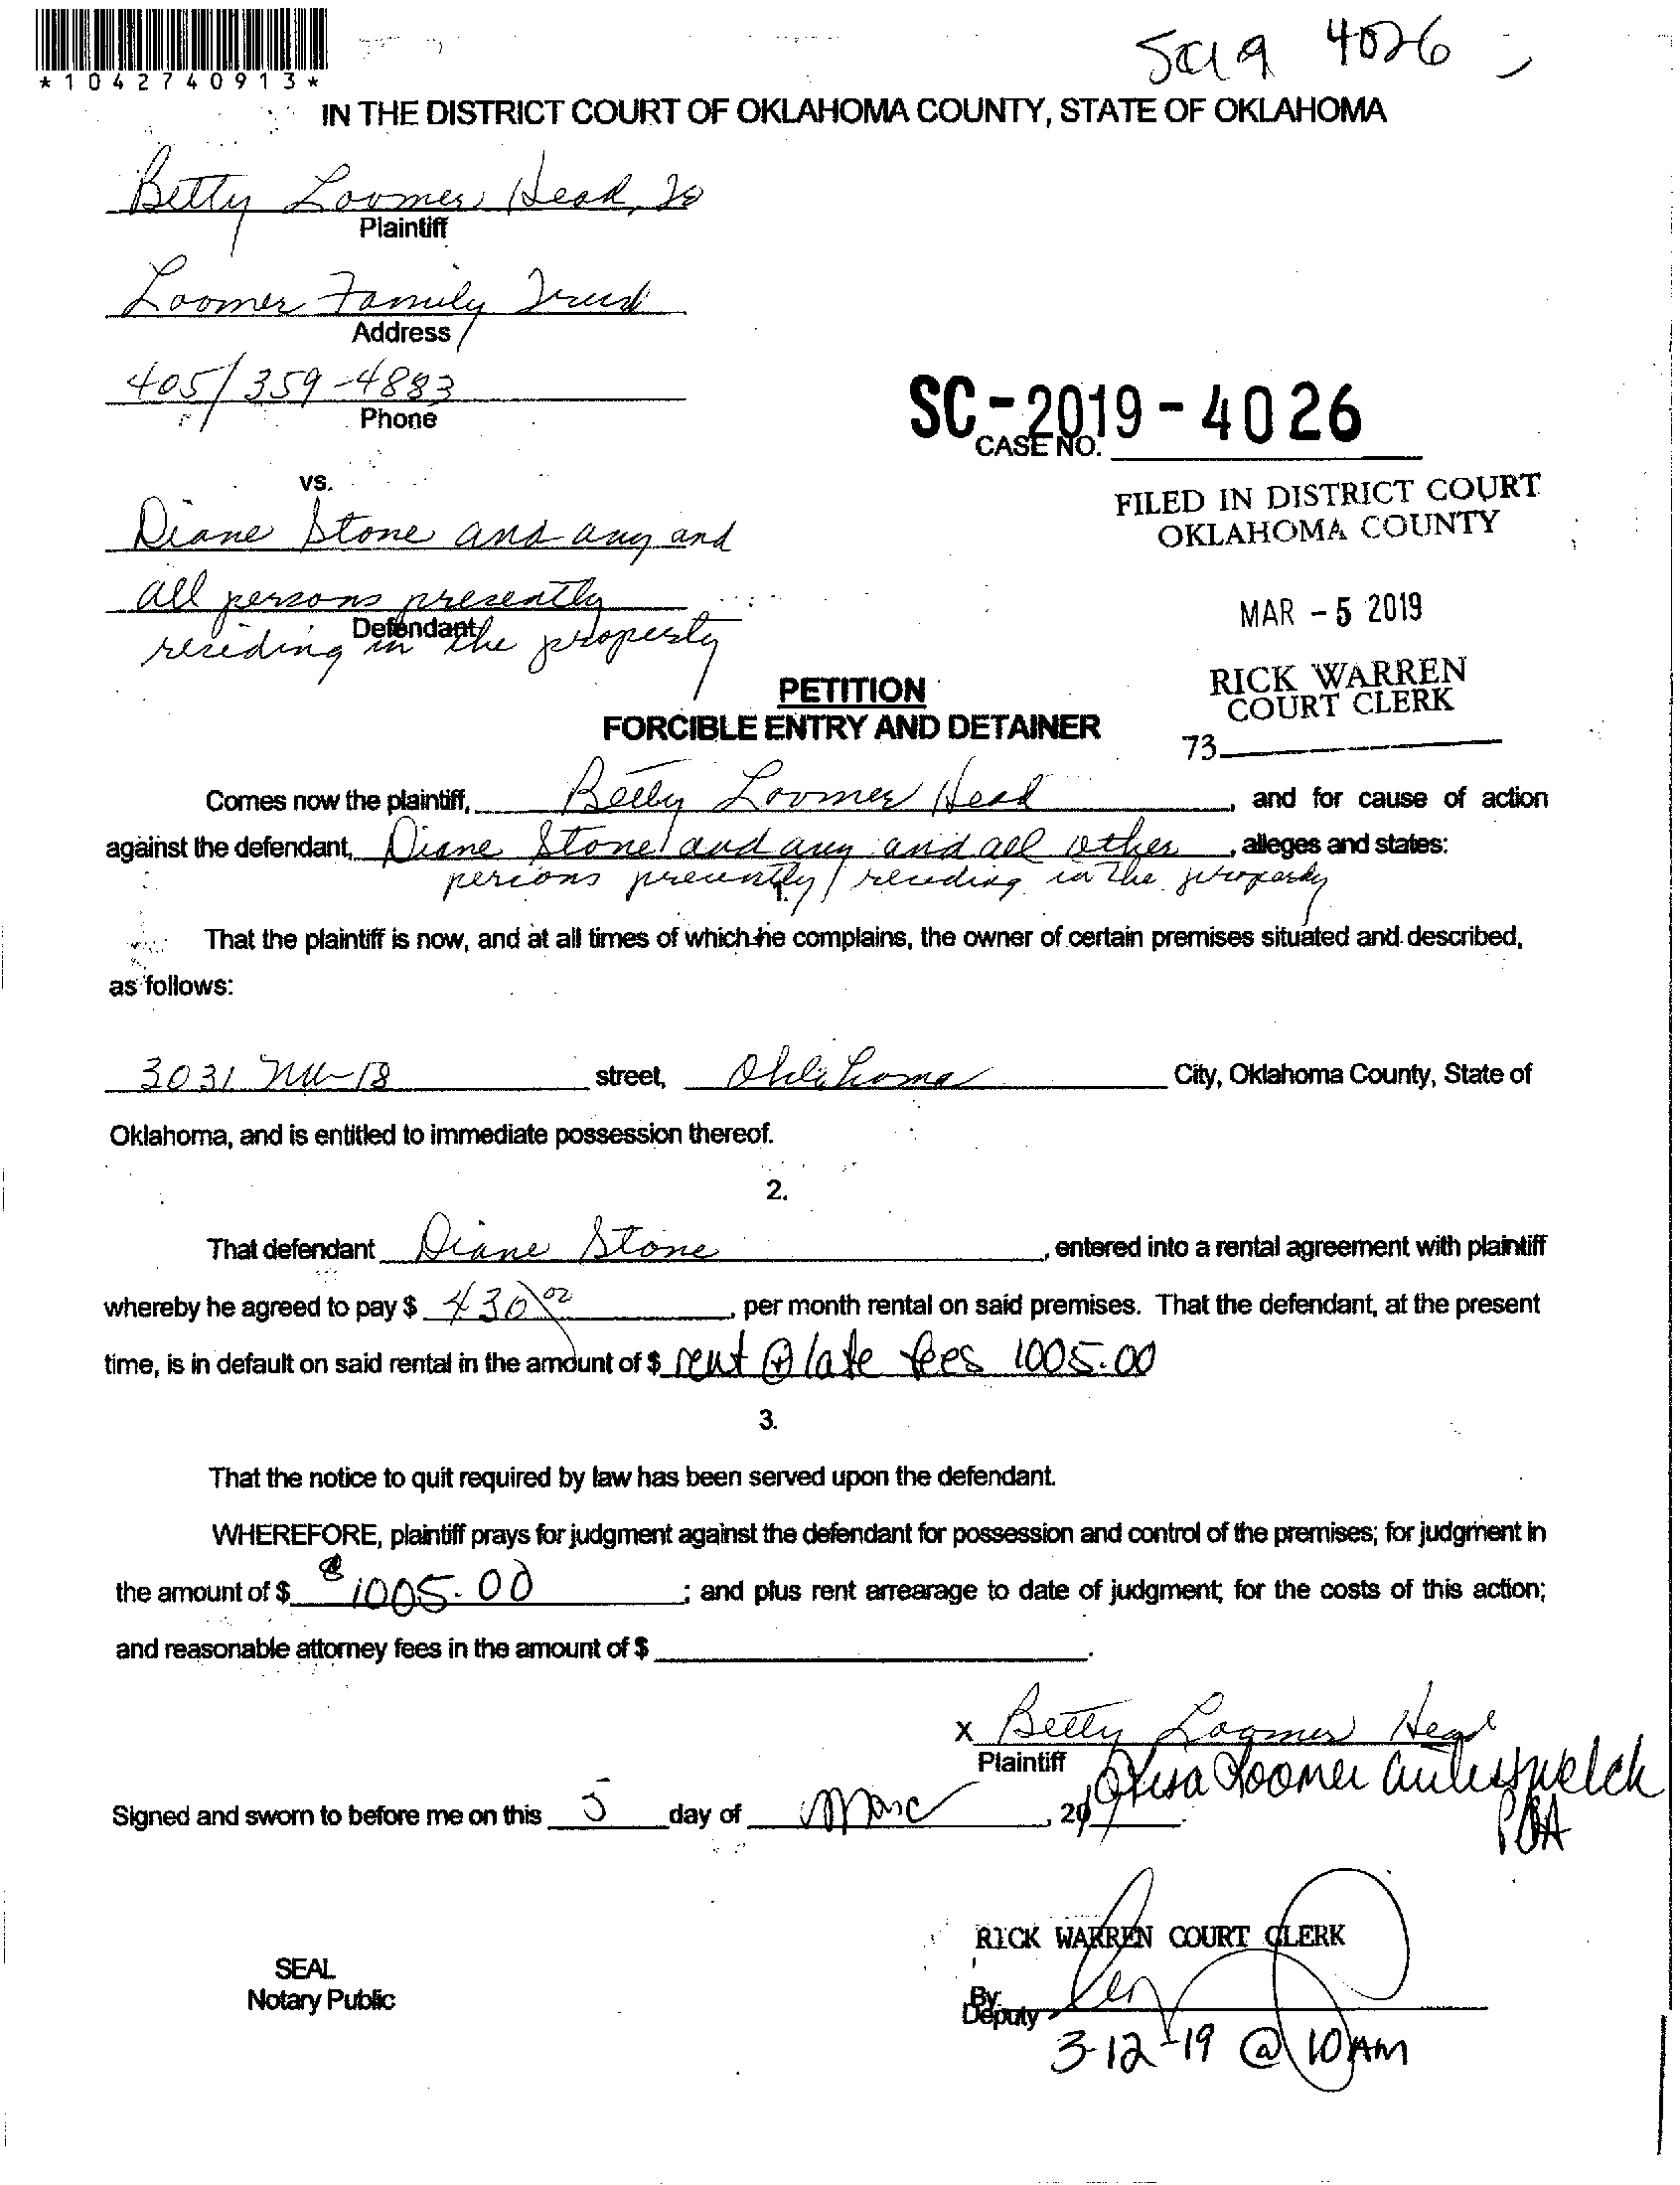 *1042740913*
SC19 4026
IN THE DISTRICT COURT OF OKLAHOMA COUNTY, STATE OF OKLAHOMA
Betty Loomer Head,
Plaintiff
Loomer Family Trust
Address
405/359-4883
Phone
SC-2019-4026
CASE NO.
vs.
FILED IN DISTRICT COURT
OKLAHOMA COUNTY
Diane Stone and any and
all persons presently
Defendant
residing in the property
MAR -5 2019
RICK WARREN
COURT CLERK
73
PETITION
FORCIBLE ENTRY AND DETAINER
Comes now the plaintiff, Betty Loomer Head, and for cause of action
against the defendant, Diane Stone and any and all other, alleges and states:
persons presently residing in the property
1.
That the plaintiff is now, and at all times of which he complains, the owner of certain premises situated and described,
as follows:
3031 NW 18 street, Oklahoma City, Oklahoma County, State of
Oklahoma, and is entitled to immediate possession thereof.
2.
That defendant Diane Stone, entered into a rental agreement with plaintiff
whereby he agreed to pay $ 430.00, per month rental on said premises. That the defendant, at the present
time, is in default on said rental in the amount of $ rent + late fees 1005.00
3.
That the notice to quit required by law has been served upon the defendant.
WHEREFORE, plaintiff prays for judgment against the defendant for possession and control of the premises; for judgment in
the amount of $ $1005.00; and plus rent arrearage to date of judgment; for the costs of this action;
and reasonable attorney fees in the amount of $.
x Betty Loomer Head
Plaintiff
Lisa Loomer POA
Signed and sworn to before me on this 5 day of Marc, 20
RICK WARREN COURT CLERK
SEAL
Notary Public
By:
Deputy
3-12-19 @ 10 AM